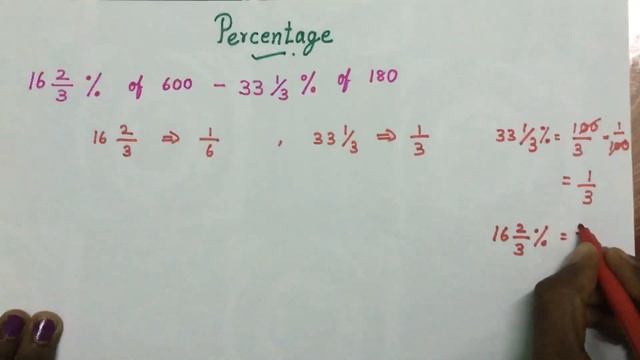 Percentage
16 2/3 % of 600 - 33 1/3 % of 180
16 2/3 ⇒ 1/6 , 33 1/3 ⇒ 1/3
33 1/3 % = 100/3 × 1/100
= 1/3
16 2/3 % =